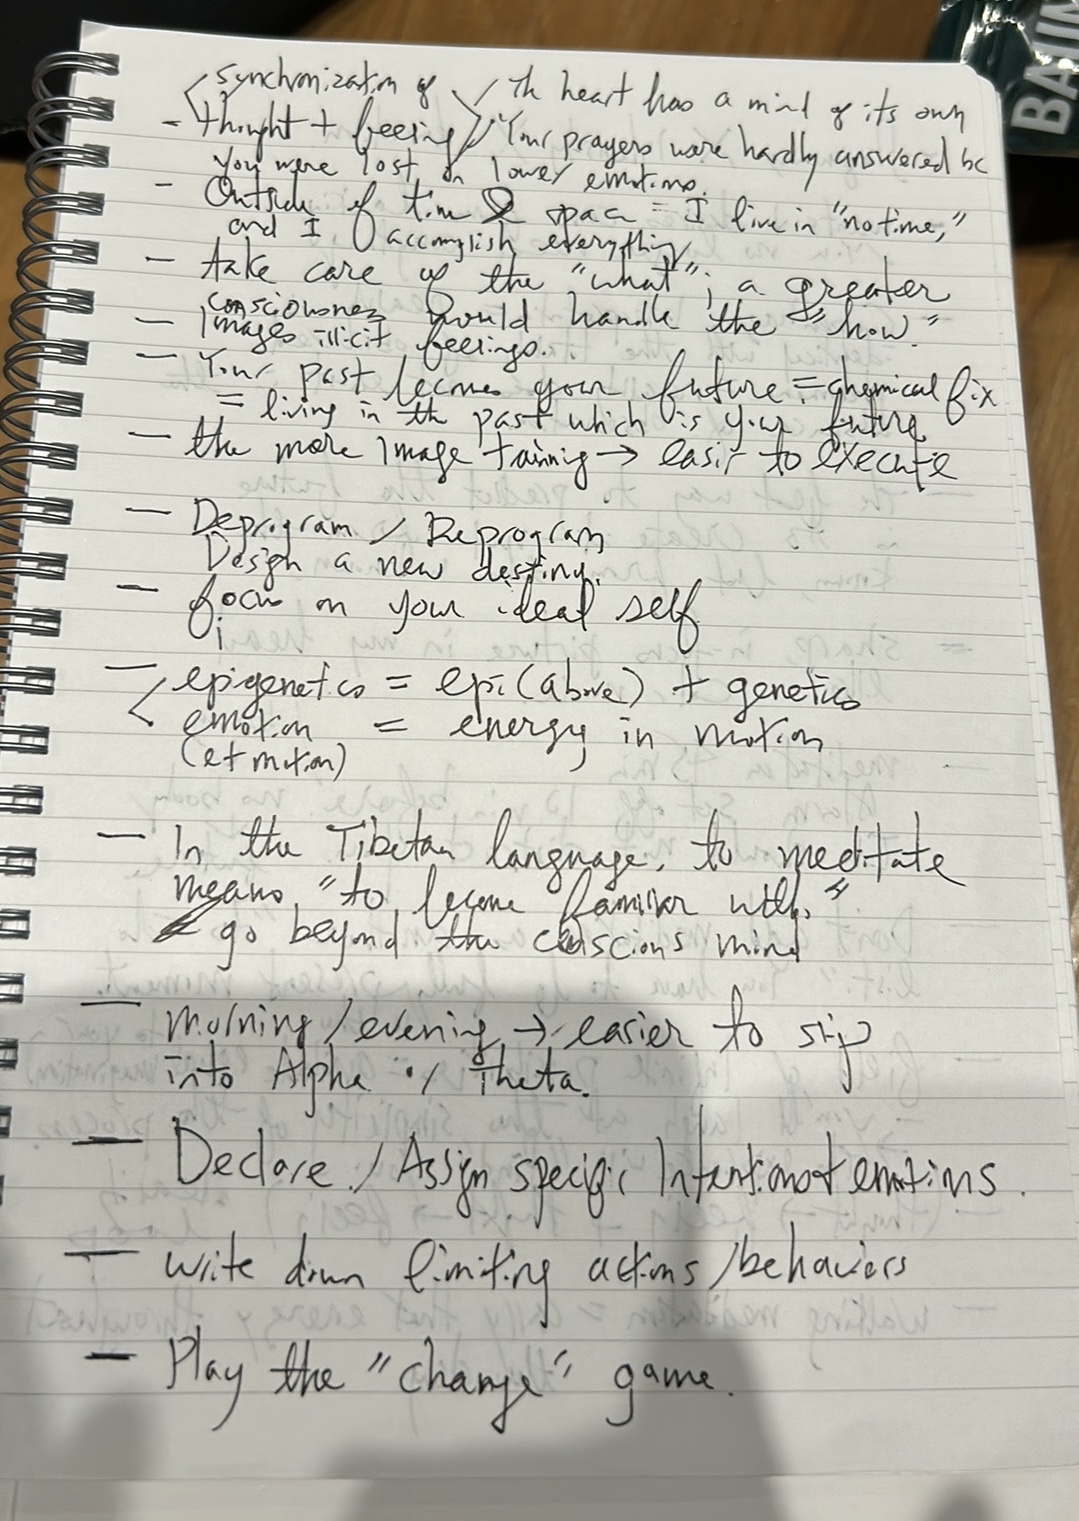 synchronization of / Th heart has a mind of its own
- thought + feeling / Your prayers were hardly answered bc
you were lost in lower emotions.
- Outside of time & space = I live in "no time,"
and I accomplish everything
- take care of the "what"; a greater
consciousness would handle the "how."
- Images illicit feelings.
- Your past become your future = chemical fix
= living in the past which is your future
- the more image training → easier to execute
- Deprogram / Reprogram
Design a new destiny.
- focus on your ideal self
- epigenetics = epi (above) + genetics
emotion = energy in motion
(e + motion)
- In the Tibetan language, to meditate
means "to become familiar with."
go beyond the conscious mind
- morning / evening → easier to slip
into Alpha / Theta.
- Declare / Assign specific Intention + emotions.
- write down limiting actions / behaviors
- Play the "change" game.